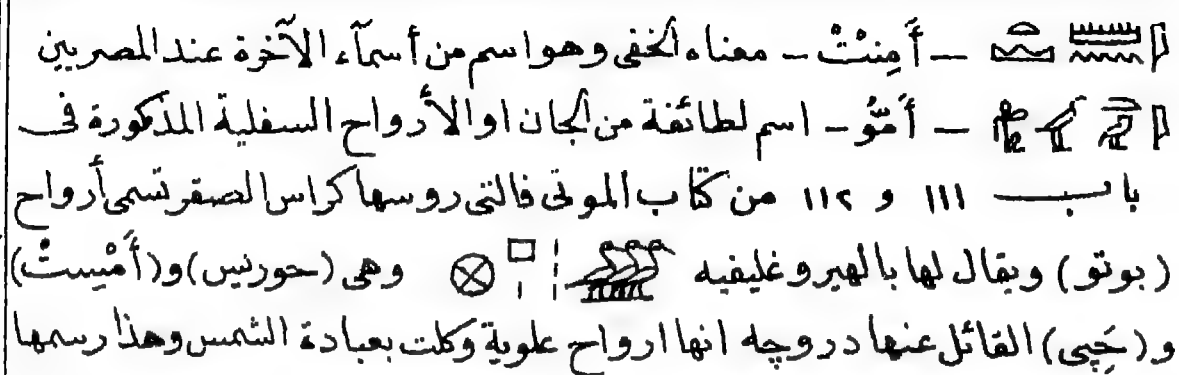 — أَمِنتْ - معناه الخفى وهو اسم من أسمآء الآخرة عند المصريين
— أَمُّو - اسم لطائفة من الجان او الأرواح السفلية المذكورة فى
باب ١١١ و ١١٢ من كتاب الموتى فالتى روسها كراس الصقر تسمى أرواح
(بوتو) ويقال لها بالهيروغليفيه وهى (حوريس) و(أَمْيِستْ)
و (حَپِى) القائل عنها دروچه انها ارواح علوية وكلت بعبادة الشمس وهذا رسمها